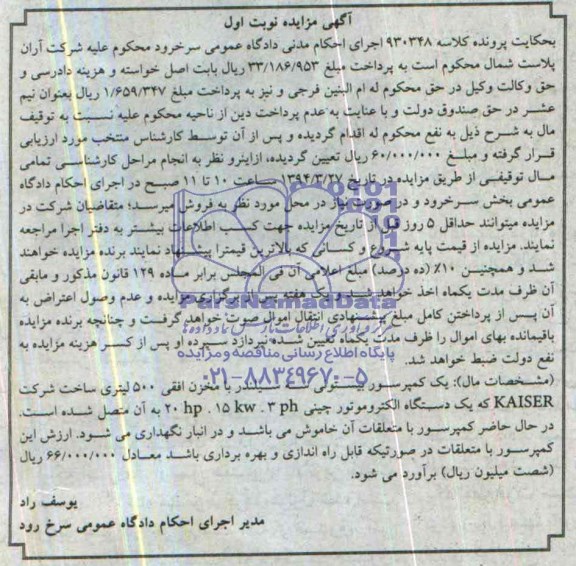 آگهی مزایده نوبت اول
بحکایت پرونده کلاسه ۹۳۰۳۴۸ اجرای احکام مدنی دادگاه عمومی سرخرود محکوم علیه شرکت آران
پلاست شمال محکوم است به پرداخت مبلغ ۳۳/۱۸۶/۹۵۳ ریال بابت اصل خواسته و هزینه دادرسی و
حق وکالت وکیل در حق محکوم له ام البنین فرجی و نیز به پرداخت مبلغ ۱/۶۵۹/۳۴۷ ریال بعنوان نیم
عشر در حق صندوق دولت و با عنایت به عدم پرداخت دین از ناحیه محکوم علیه نسبت به توقیف
مال به شرح ذیل به نفع محکوم له اقدام گردیده و پس از آن توسط کارشناس منتخب مورد ارزیابی
قرار گرفته و مبلغ ۶۰/۰۰۰/۰۰۰ ریال تعیین گردیده، ازاینرو نظر به انجام مراحل کارشناسی تمامی
مال توقیفی از طریق مزایده در تاریخ ۱۳۹۴/۳/۲۷ ساعت ۱۰ تا ۱۱ صبح در اجرای احکام دادگاه
عمومی بخش سرخرود و در صورت نیاز در محل مورد نظر به فروش میرسد؛ متقاضیان شرکت در
مزایده میتوانند حداقل ۵ روز قبل از تاریخ مزایده جهت کسب اطلاعات بیشتر به دفتر اجرا مراجعه
نمایند. مزایده از قیمت پایه شروع و کسانی که بالاترین قیمترا پیشنهاد نمایند برنده مزایده خواهند
شد و همچنین ۱۰٪ (ده درصد) مبلغ اعلامی آن فی المجلس برابر ماده ۱۲۹ قانون مذکور و مابقی
آن ظرف مدت یکماه اخذ خواهد شد و یک هفته پس از برگزاری مزایده و عدم وصول اعتراض به
آن پس از پرداختن کامل مبلغ پیشنهادی انتقال اموال صوت خواهد گرفت و چنانچه برنده مزایده
باقیمانده بهای اموال را ظرف مدت یکماه تعیین شده نپردازد سپرده او پس از کسر هزینه مزایده به
نفع دولت ضبط خواهد شد.
ParsNamadData
پایگاه اطلاع رسانی مناقصه و مزایده
۰۲۱-۸۸۳۴۹۶۷۰-۵
(مشخصات مال): یک کمپرسور پیستونی سیلندر با مخزن افقی ۵۰۰ لیتری ساخت شرکت
KAISER که یک دستگاه الکتروموتور چینی ۳ ph . ۱۵ kw . ۲۰ hp به آن متصل شده است.
در حال حاضر کمپرسور با متعلقات آن خاموش می باشد و در انبار نگهداری می شود. ارزش این
کمپرسور با متعلقات در صورتیکه قابل راه اندازی و بهره برداری باشد معادل ۶۶/۰۰۰/۰۰۰ ریال
(شصت میلیون ریال) برآورد می شود.
یوسف راد
مدیر اجرای احکام دادگاه عمومی سرخ رود